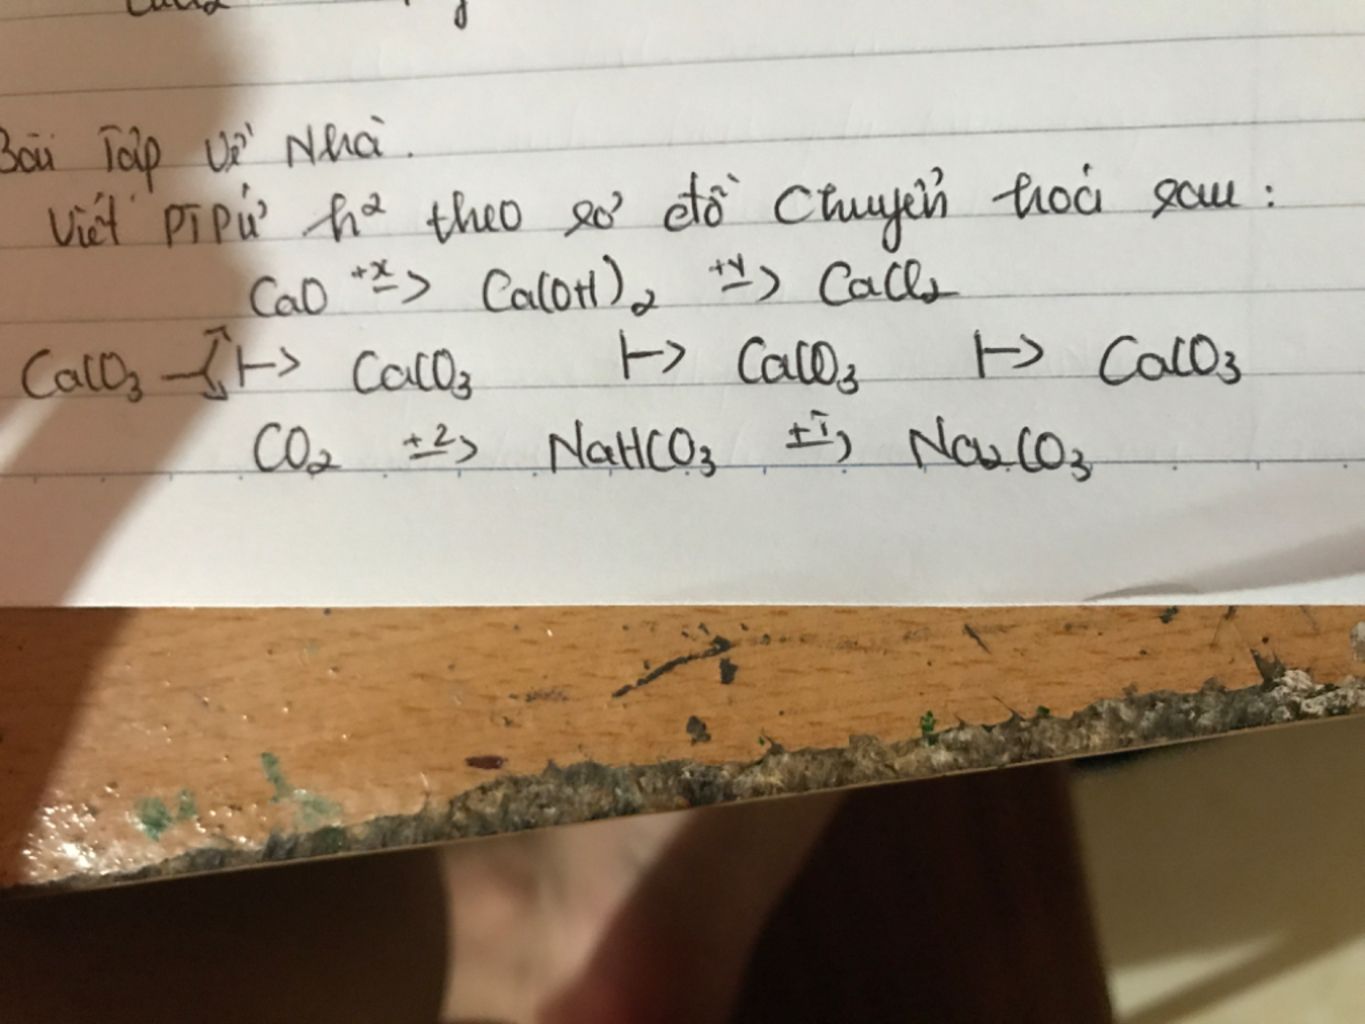 Bài Tập Về Nhà.
Viết PTPứ h² theo sơ đồ chuyển hoá sau :
CaO +x→ Ca(OH)2 +y→ CaCl2
CaCO3 → CaCO3 ↦ CaCO3 ↦ CaCO3
CO2 +z→ NaHCO3 +T→ Na2CO3